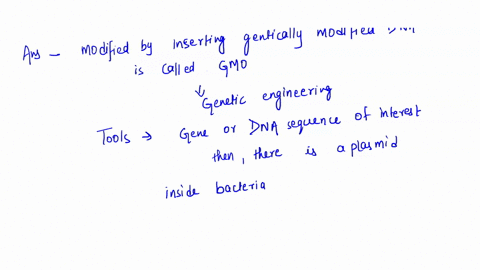 Ans - Modified by inserting gentically modified DNA
is called GMO
↓ Genetic engineering
Tools → Gene or DNA sequence of interest
then, there is a plasmid
inside bacteria